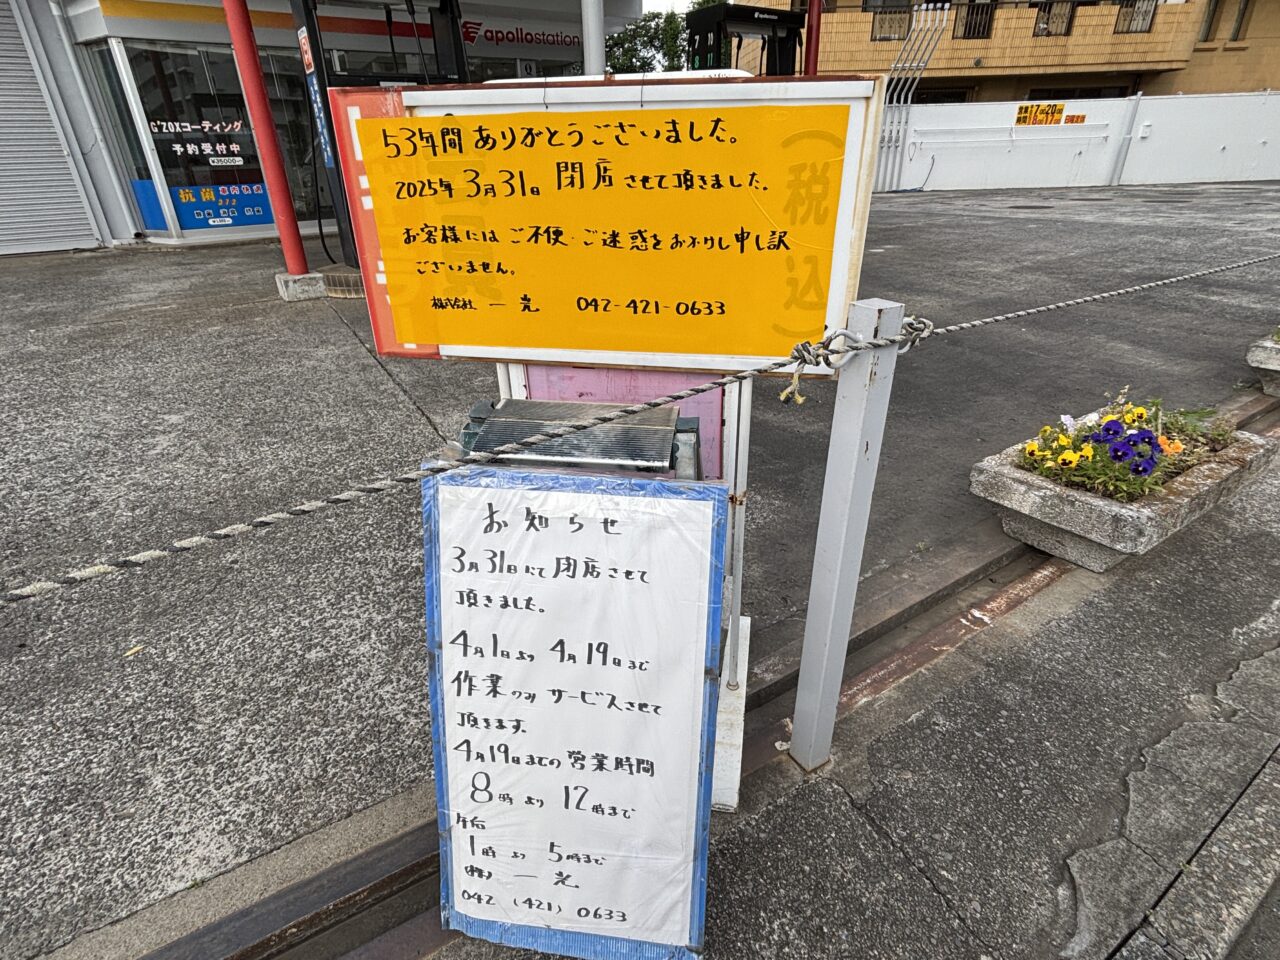 apollostation
apollostation
G'ZOXコーティング
予約受付中
¥35000～
抗菌
営業 7:00 20:00
53年間 ありがとうございました。
2025年 3月31日 閉店させて頂きました。
お客様にはご不便・ご迷惑をおかけし申し訳
ございません。
株式会社 一光 042-421-0633
（税込）
お知らせ
3月31日にて閉店させて
頂きました。
4月1日より 4月19日まで
作業のみ サービスさせて
頂きます。
4月19日までの営業時間
8時より 12時まで
午后
1時より 5時まで
(株) 一光
042 (421) 0633